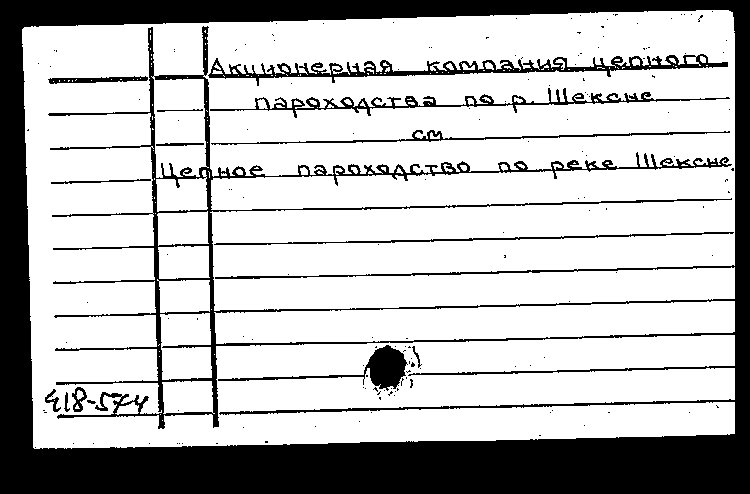 Акционерная компания цепного
пароходства по р. Шексне
см.
Цепное пароходство по реке Шексне.
418-574